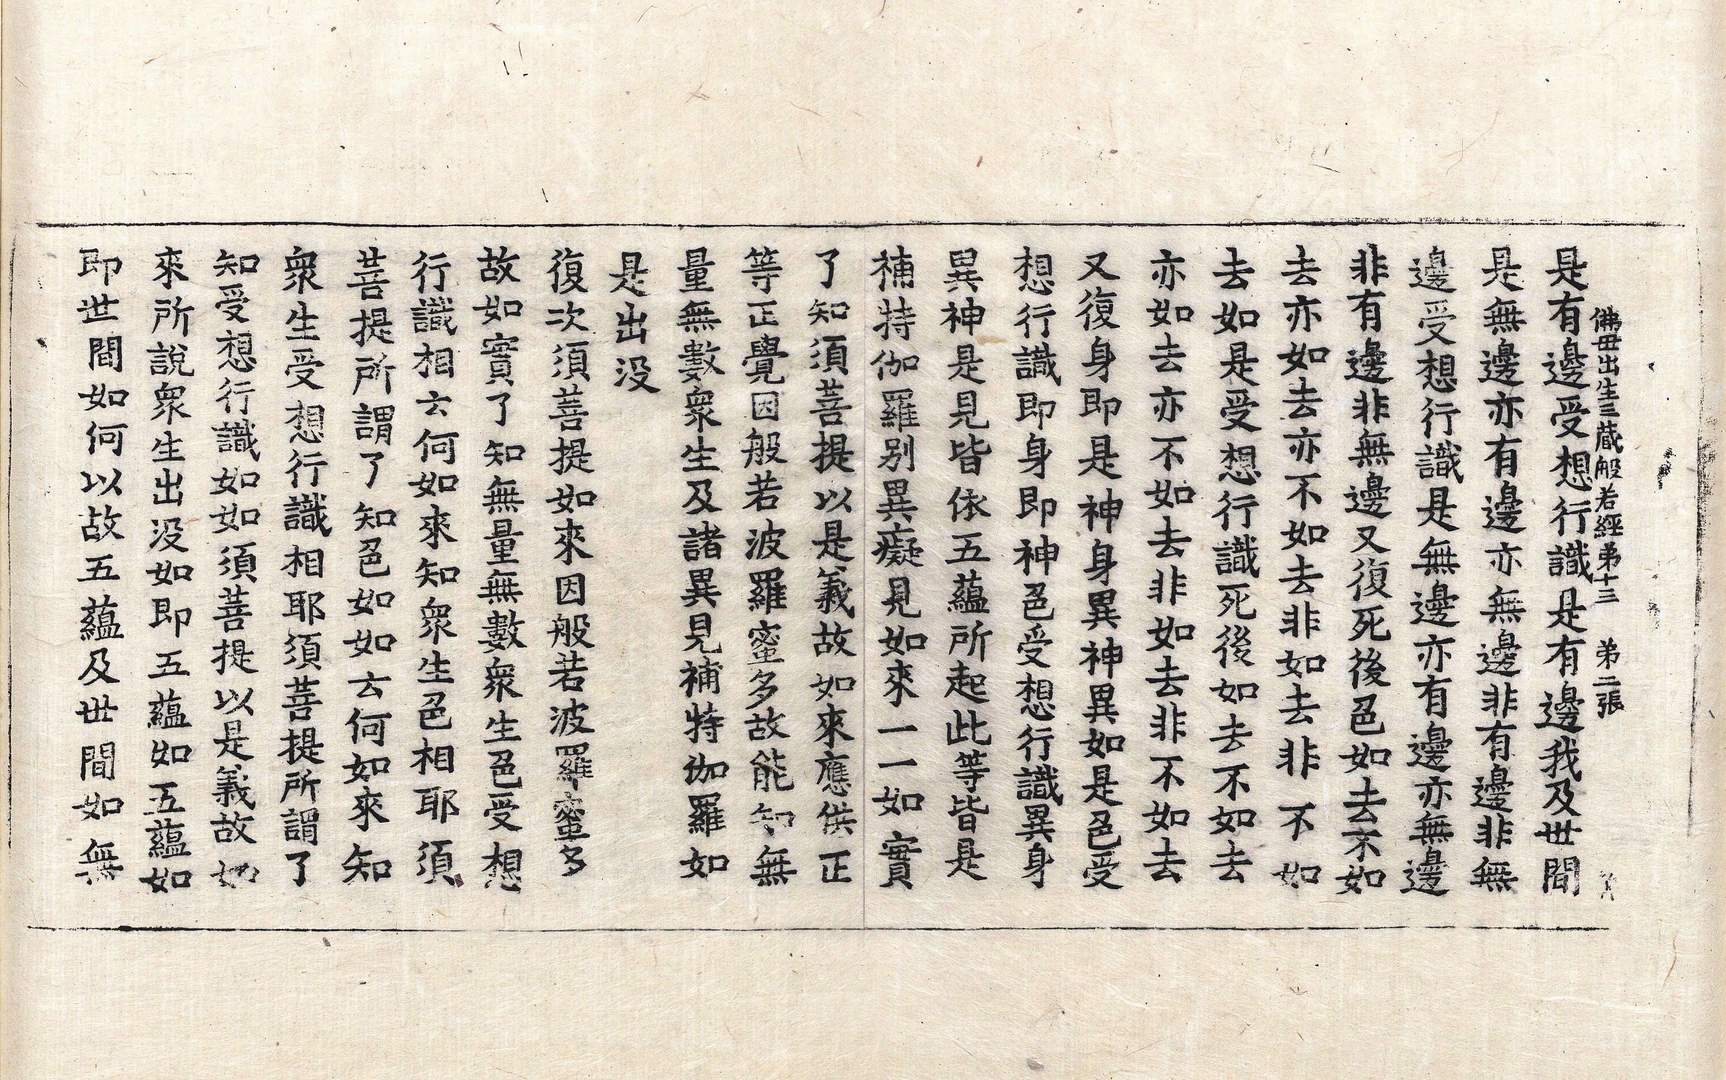 佛母出生三蔵般若經弟十三 弟二張
是有邊受想行識是有邊我及世間
是無邊亦有邊亦無邊非有邊非無
邊受想行識是無邊亦有邊亦無邊
非有邊非無邊又復死後色如去不如
去亦如去亦不如去非如去非不如
去如是受想行識死後如去不如去
亦如去亦不如去非如去非不如去
又復身即是神身異神異如是色受
想行識即身即神色受想行識異身
異神是見皆依五蘊所起此等皆是
補特伽羅別異癡見如來一一如實
了知須菩提以是義故如來應供正
等正覺因般若波羅蜜多故能知無
量無數衆生及諸異見補特伽羅如
是出没
復次須菩提如來因般若波羅蜜多
故如實了知無量無數衆生色受想
行識相云何如來知衆生色相耶須
菩提所謂了知色如如云何如來知
衆生受想行識相耶須菩提所謂了
知受想行識如如須菩提以是義故如
來所說衆生出没如即五蘊如五蘊如
即世間如何以故五蘊及世間如無